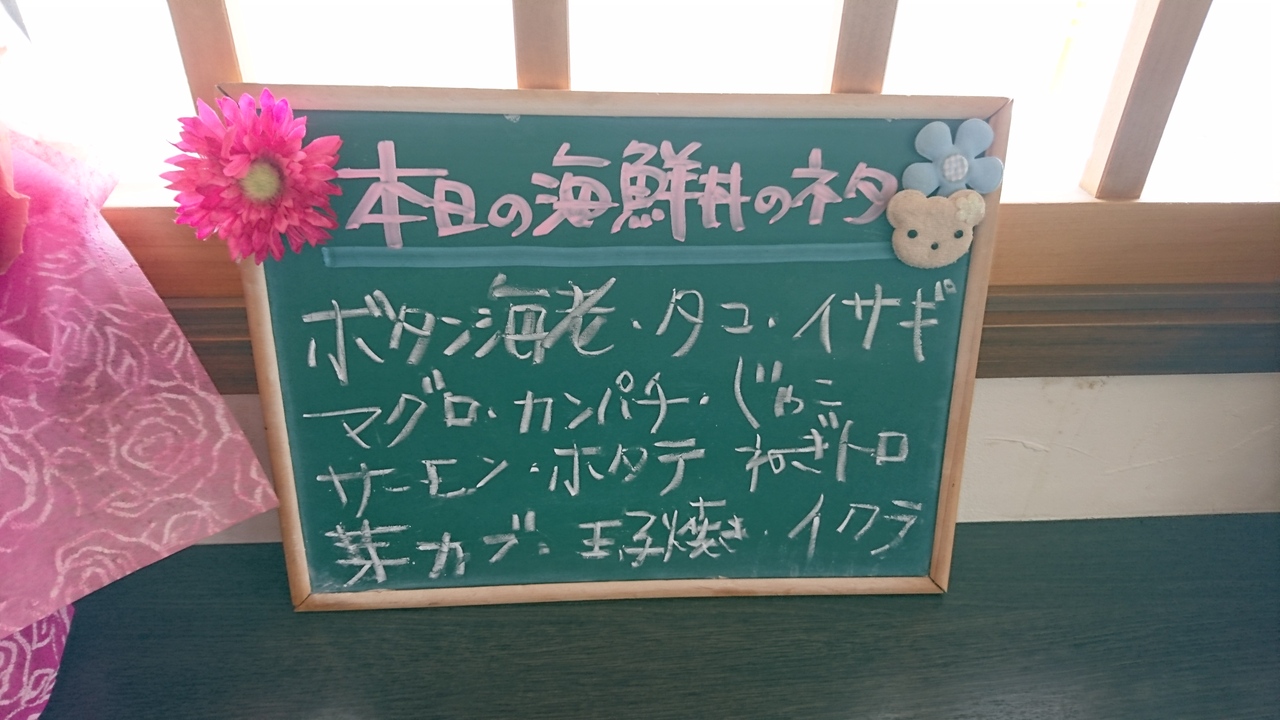 本日の海鮮丼のネタ
ボタン海老・タコ・イサギ
マグロ・カンパチ・じゃこ
サーモン・ホタテ ねぎトロ
芽カブ・玉子焼き・イクラ